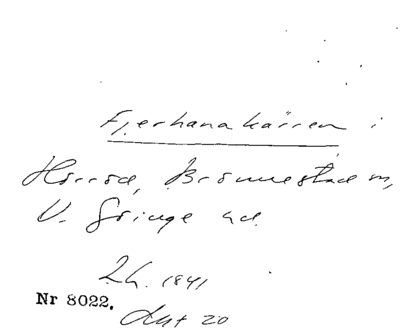 Fjerhanakärren i
Hörröd, Brönnestads sn,
V. Göinge hd.
2h. 1841
Nr 8022.
20